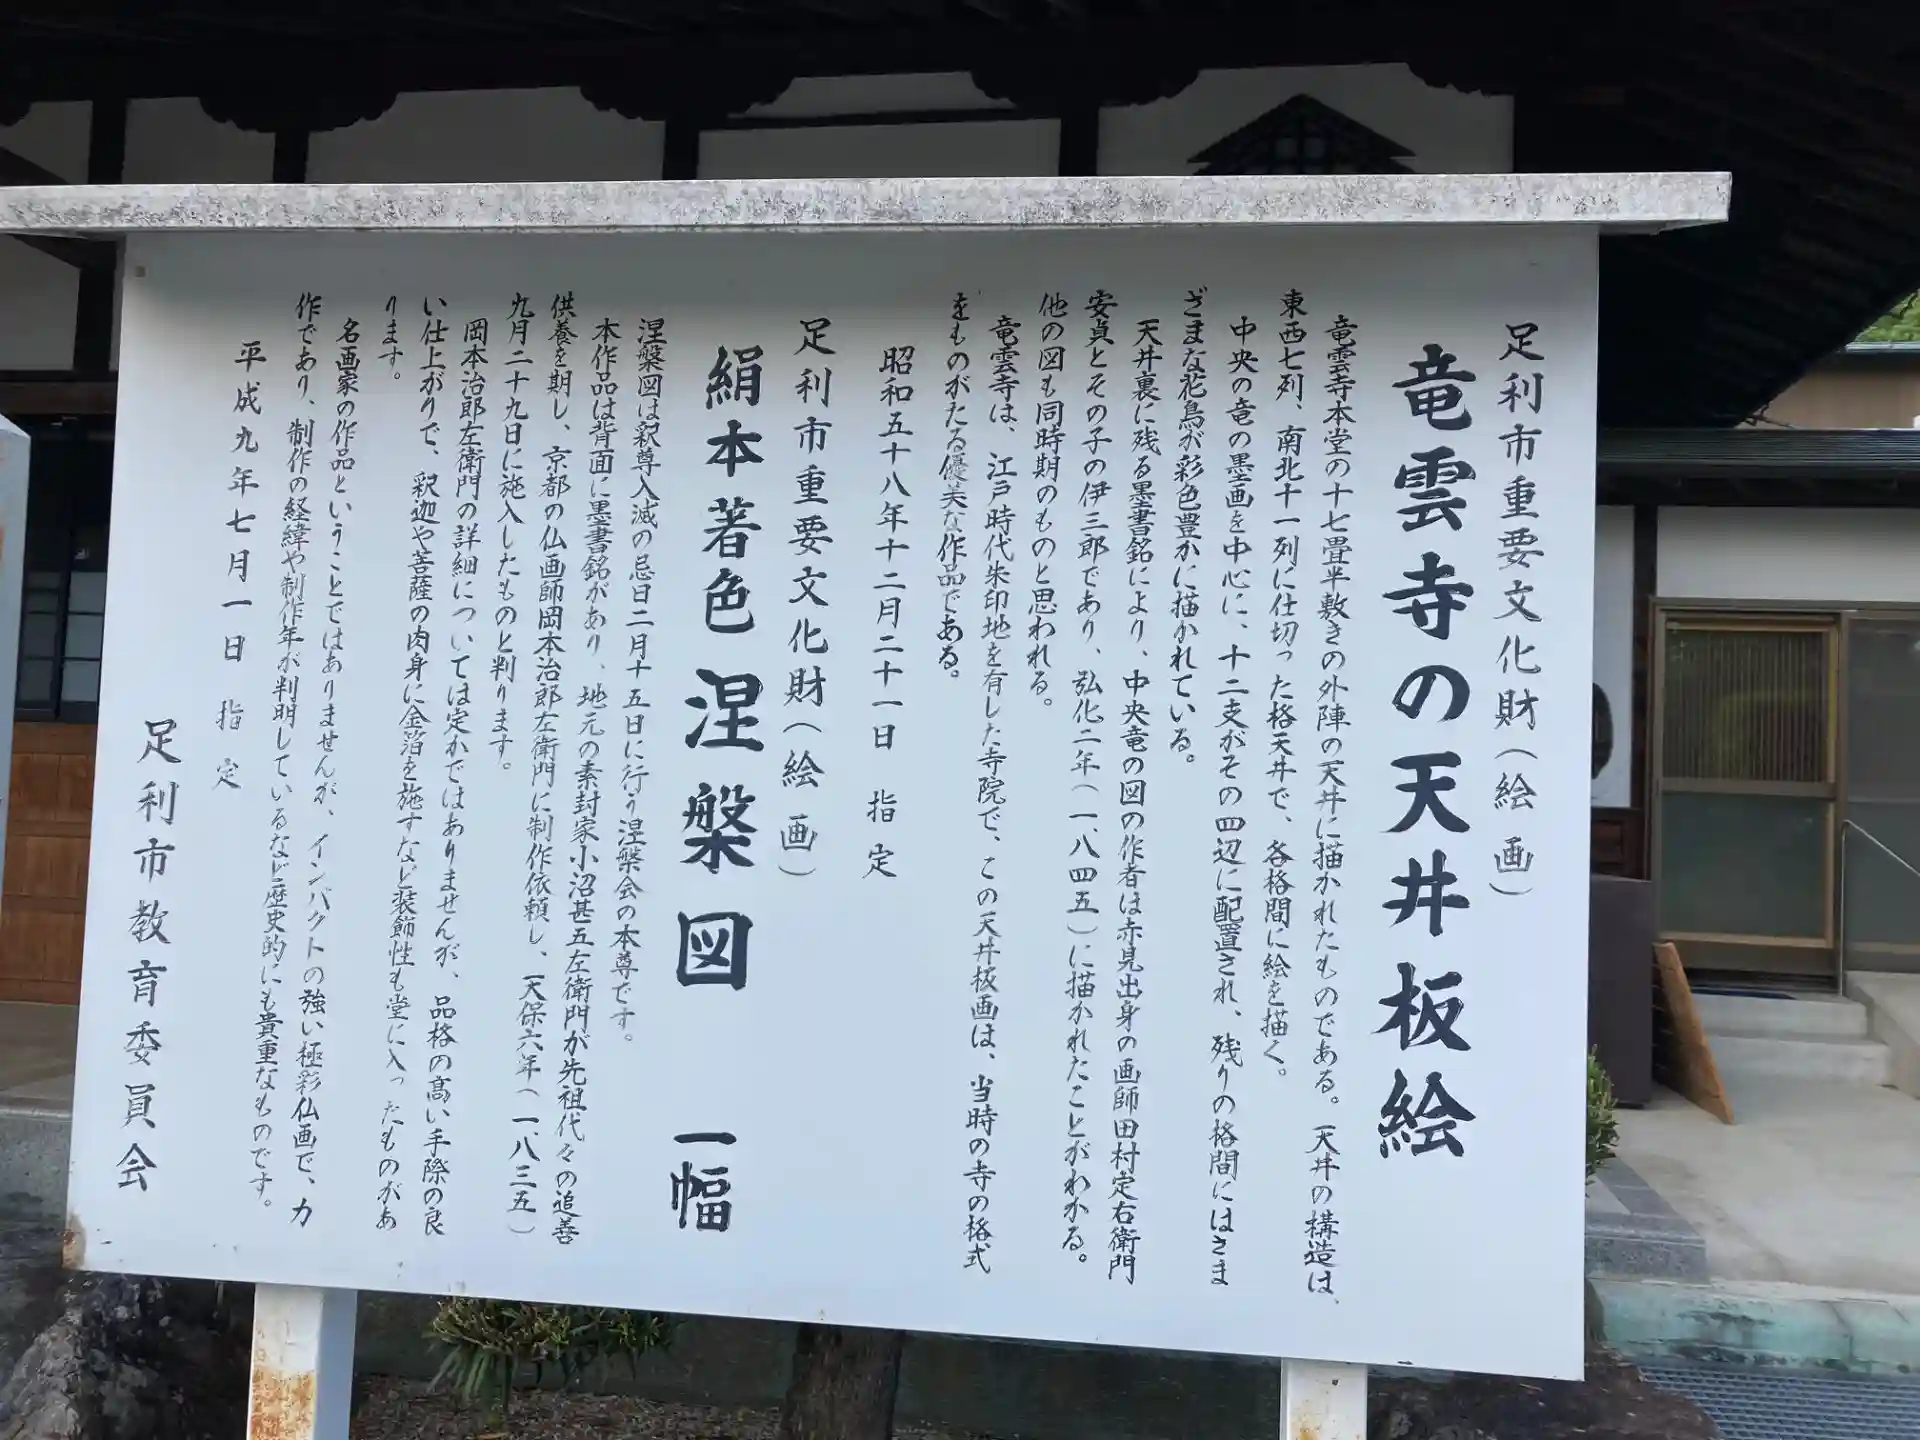 足利市重要文化財(絵画)
竜雲寺の天井板絵
竜雲寺本堂の十七畳半敷きの外陣の天井に描かれたものである。天井の構造は、
東西七列、南北十一列に仕切った格天井で、各格間に絵を描く。
中央の竜の墨画を中心に、十二支がその四辺に配置され、残りの格間にはさま
ざまな花鳥が彩色豊かに描かれている。
天井裏に残る墨書銘により、中央竜の図の作者は赤見出身の画師田村定右衛門
安貞とその子の伊三郎であり、弘化二年(一、八四五)に描かれたことがわかる。
他の図も同時期のものと思われる。
竜雲寺は、江戸時代朱印地を有した寺院で、この天井板画は、当時の寺の格式
をものがたる優美な作品である。
昭和五十八年十二月二十一日 指定
足利市重要文化財(絵画)
絹本著色涅槃図 一幅
涅槃図は釈尊入滅の忌日二月十五日に行う涅槃会の本尊です。
本作品は背面に墨書銘があり、地元の素封家小沼甚五左衛門が先祖代々の追善
供養を期し、京都の仏画師岡本治郎左衛門に制作依頼し、天保六年(一、八三五)
九月二十九日に施入したものと判ります。
岡本治郎左衛門の詳細については定かではありませんが、品格の高い手際の良
い仕上がりで、釈迦や菩薩の肉身に金箔を施すなど装飾性も堂に入ったものがあ
ります。
名画家の作品ということではありませんが、インパクトの強い極彩仏画で、力
作であり、制作の経緯や制作年が判明しているなど歴史的にも貴重なものです。
平成九年七月一日 指定
足利市教育委員会